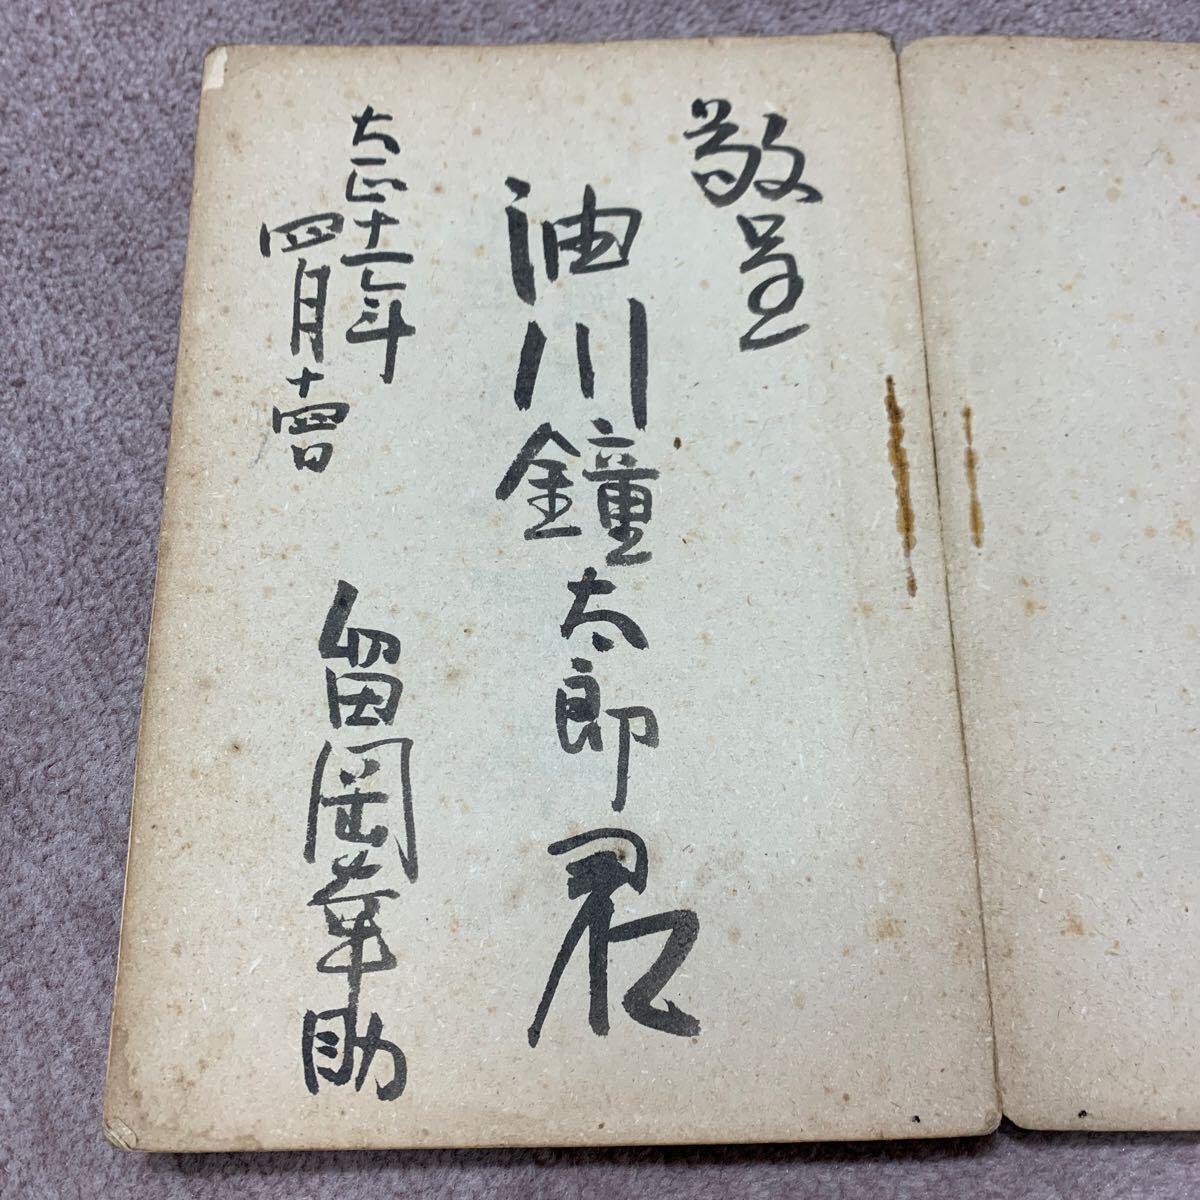 敬呈
油川鐘太郎君
大正十一年
四月十四日
留岡幸助